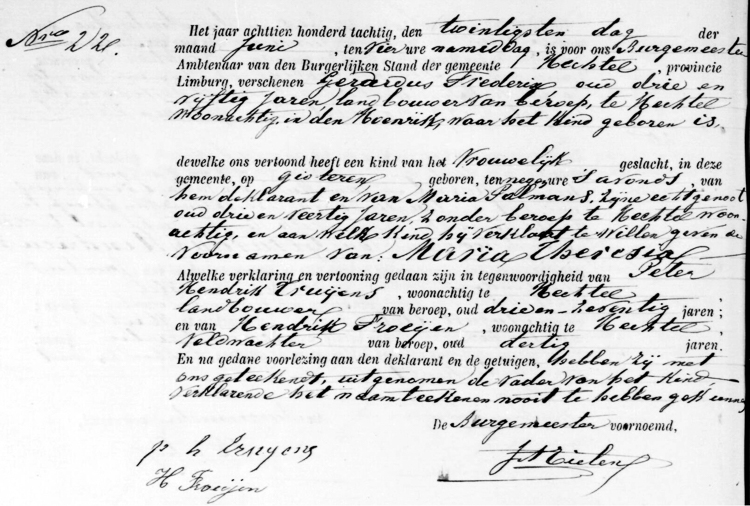 Nro 22.
Het jaar achttien honderd tachtig, den twintigsten dag der
maand Juni, ten vier ure namiddag, is voor ons Burgemeester
Ambtenaar van den Burgerlijken Stand der gemeente Hechtel, provincie
Limburg, verschenen Gerardus Frederix oud drie en
vyftig Jaren, landbouwer van beroep, te Hechtel
woonachtig, in den Hoenrik, waar het Kind geboren is,
dewelke ons vertoond heeft een kind van het Vrouwelijk geslacht, in deze
gemeente, op gisteren geboren, ten negen ure 's avonds, van
hem deklarant en van Maria Salmans, zijne echtgenoot
oud drie en veertig Jaren, zonder beroep te Hechtel woon-
achtig, en aan welk Kind hij verklaart te willen geven de
Voornamen van: Maria Theresia
Alwelke verklaring en vertooning gedaan zijn in tegenwoordigheid van Peter
Hendrik Truijens, woonachtig te Hechtel
landbouwer van beroep, oud drie en zeventig jaren;
en van Hendrik Froeijen, woonachtig te Hechtel,
Veldwachter van beroep, oud dertig jaren.
En na gedane voorlezing aan den deklarant en de getuigen, hebben zij met
ons geteekendt, uitgenomen de vader van het Kind
verklarende het naamteekenen nooit te hebben gekunnen
De Burgemeester voornoemd,
p h Truyens
H Froeijen